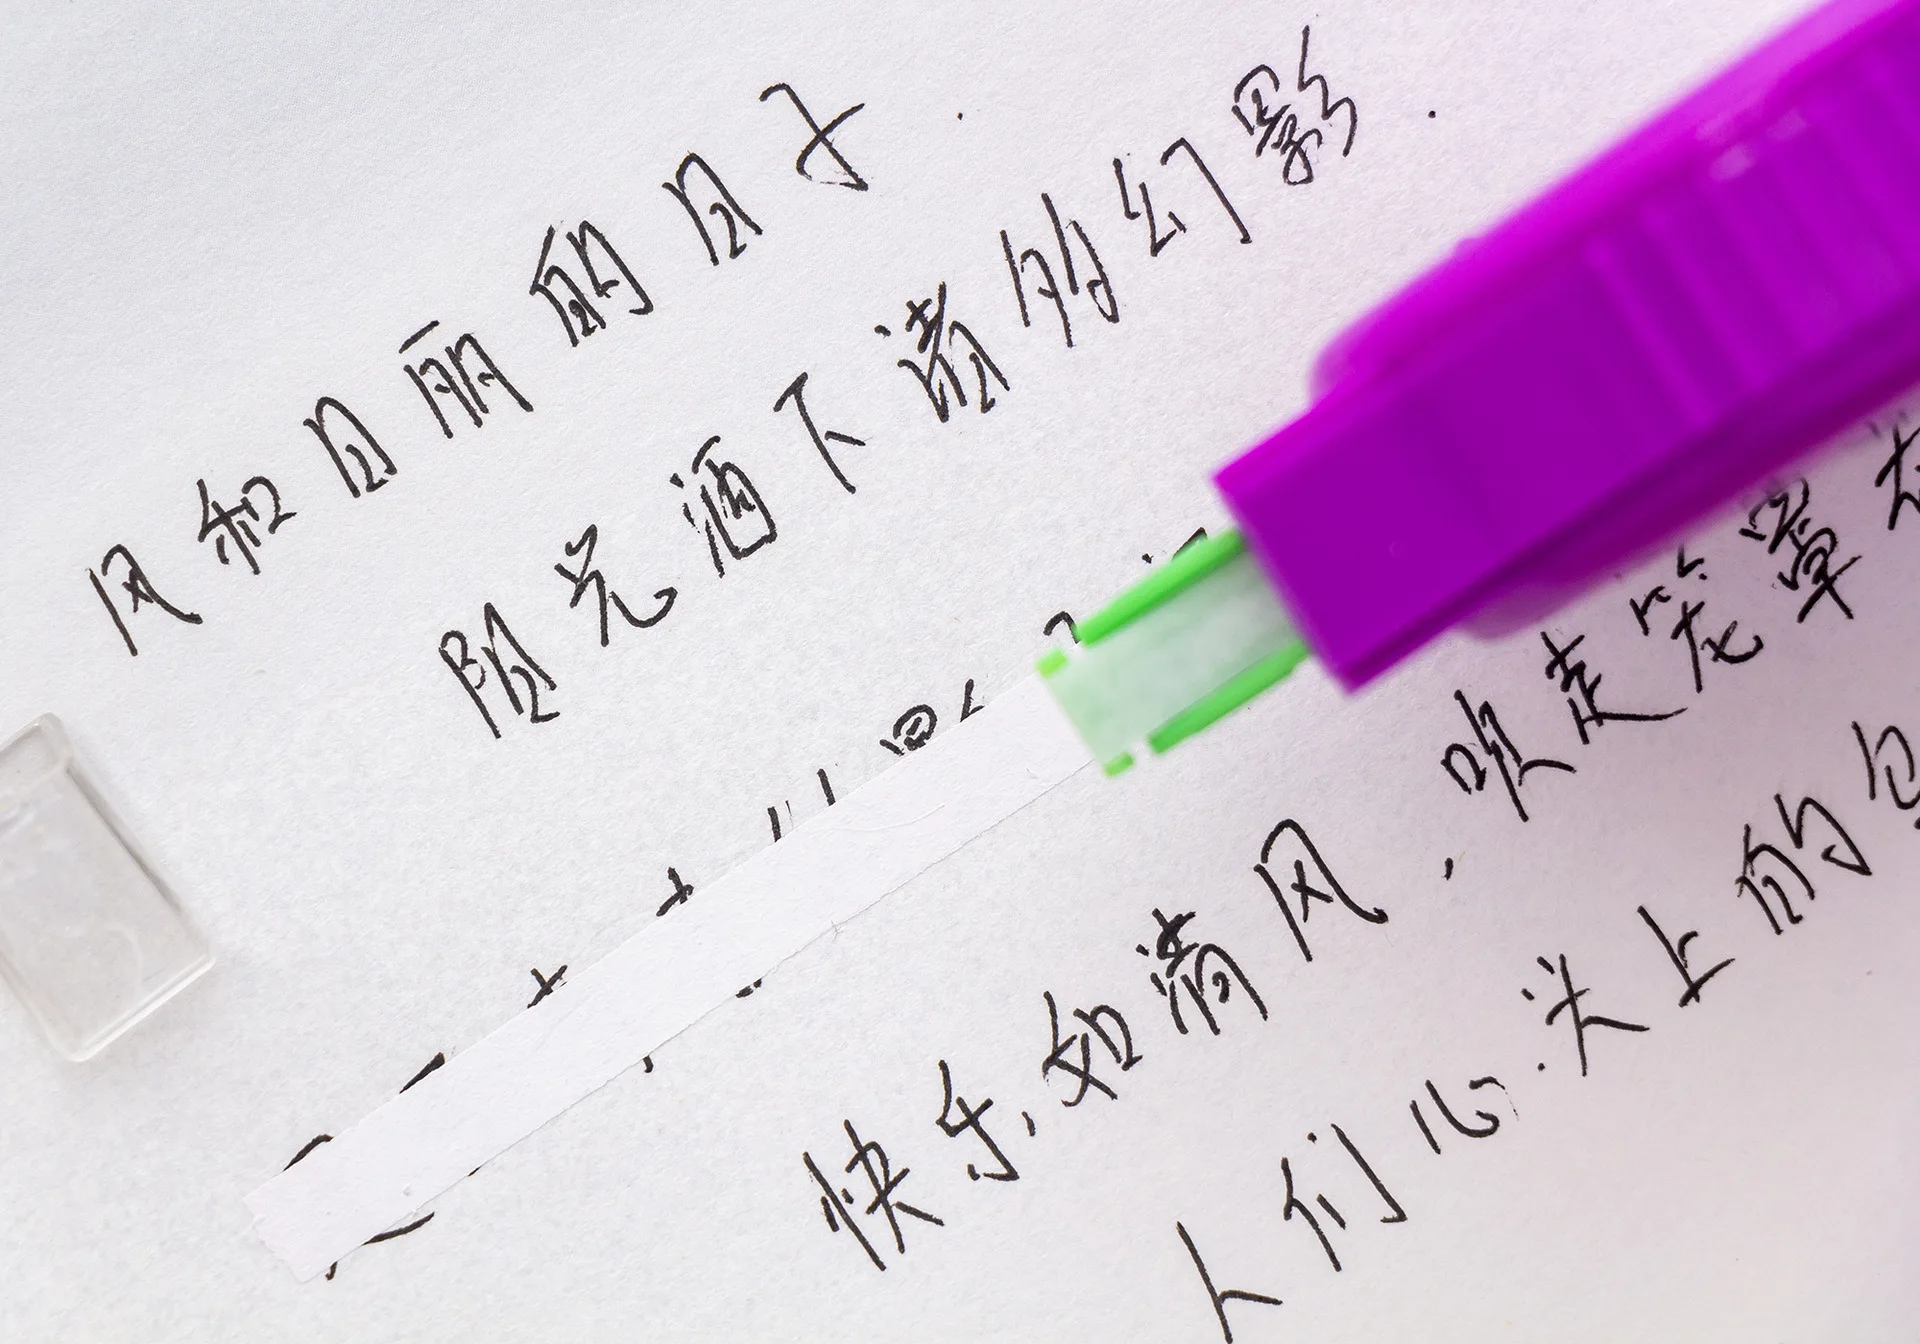 风和日丽的日子.
阳光洒下清的幻影.
快乐,如清风,吹走笼罩在
人们心头上的包